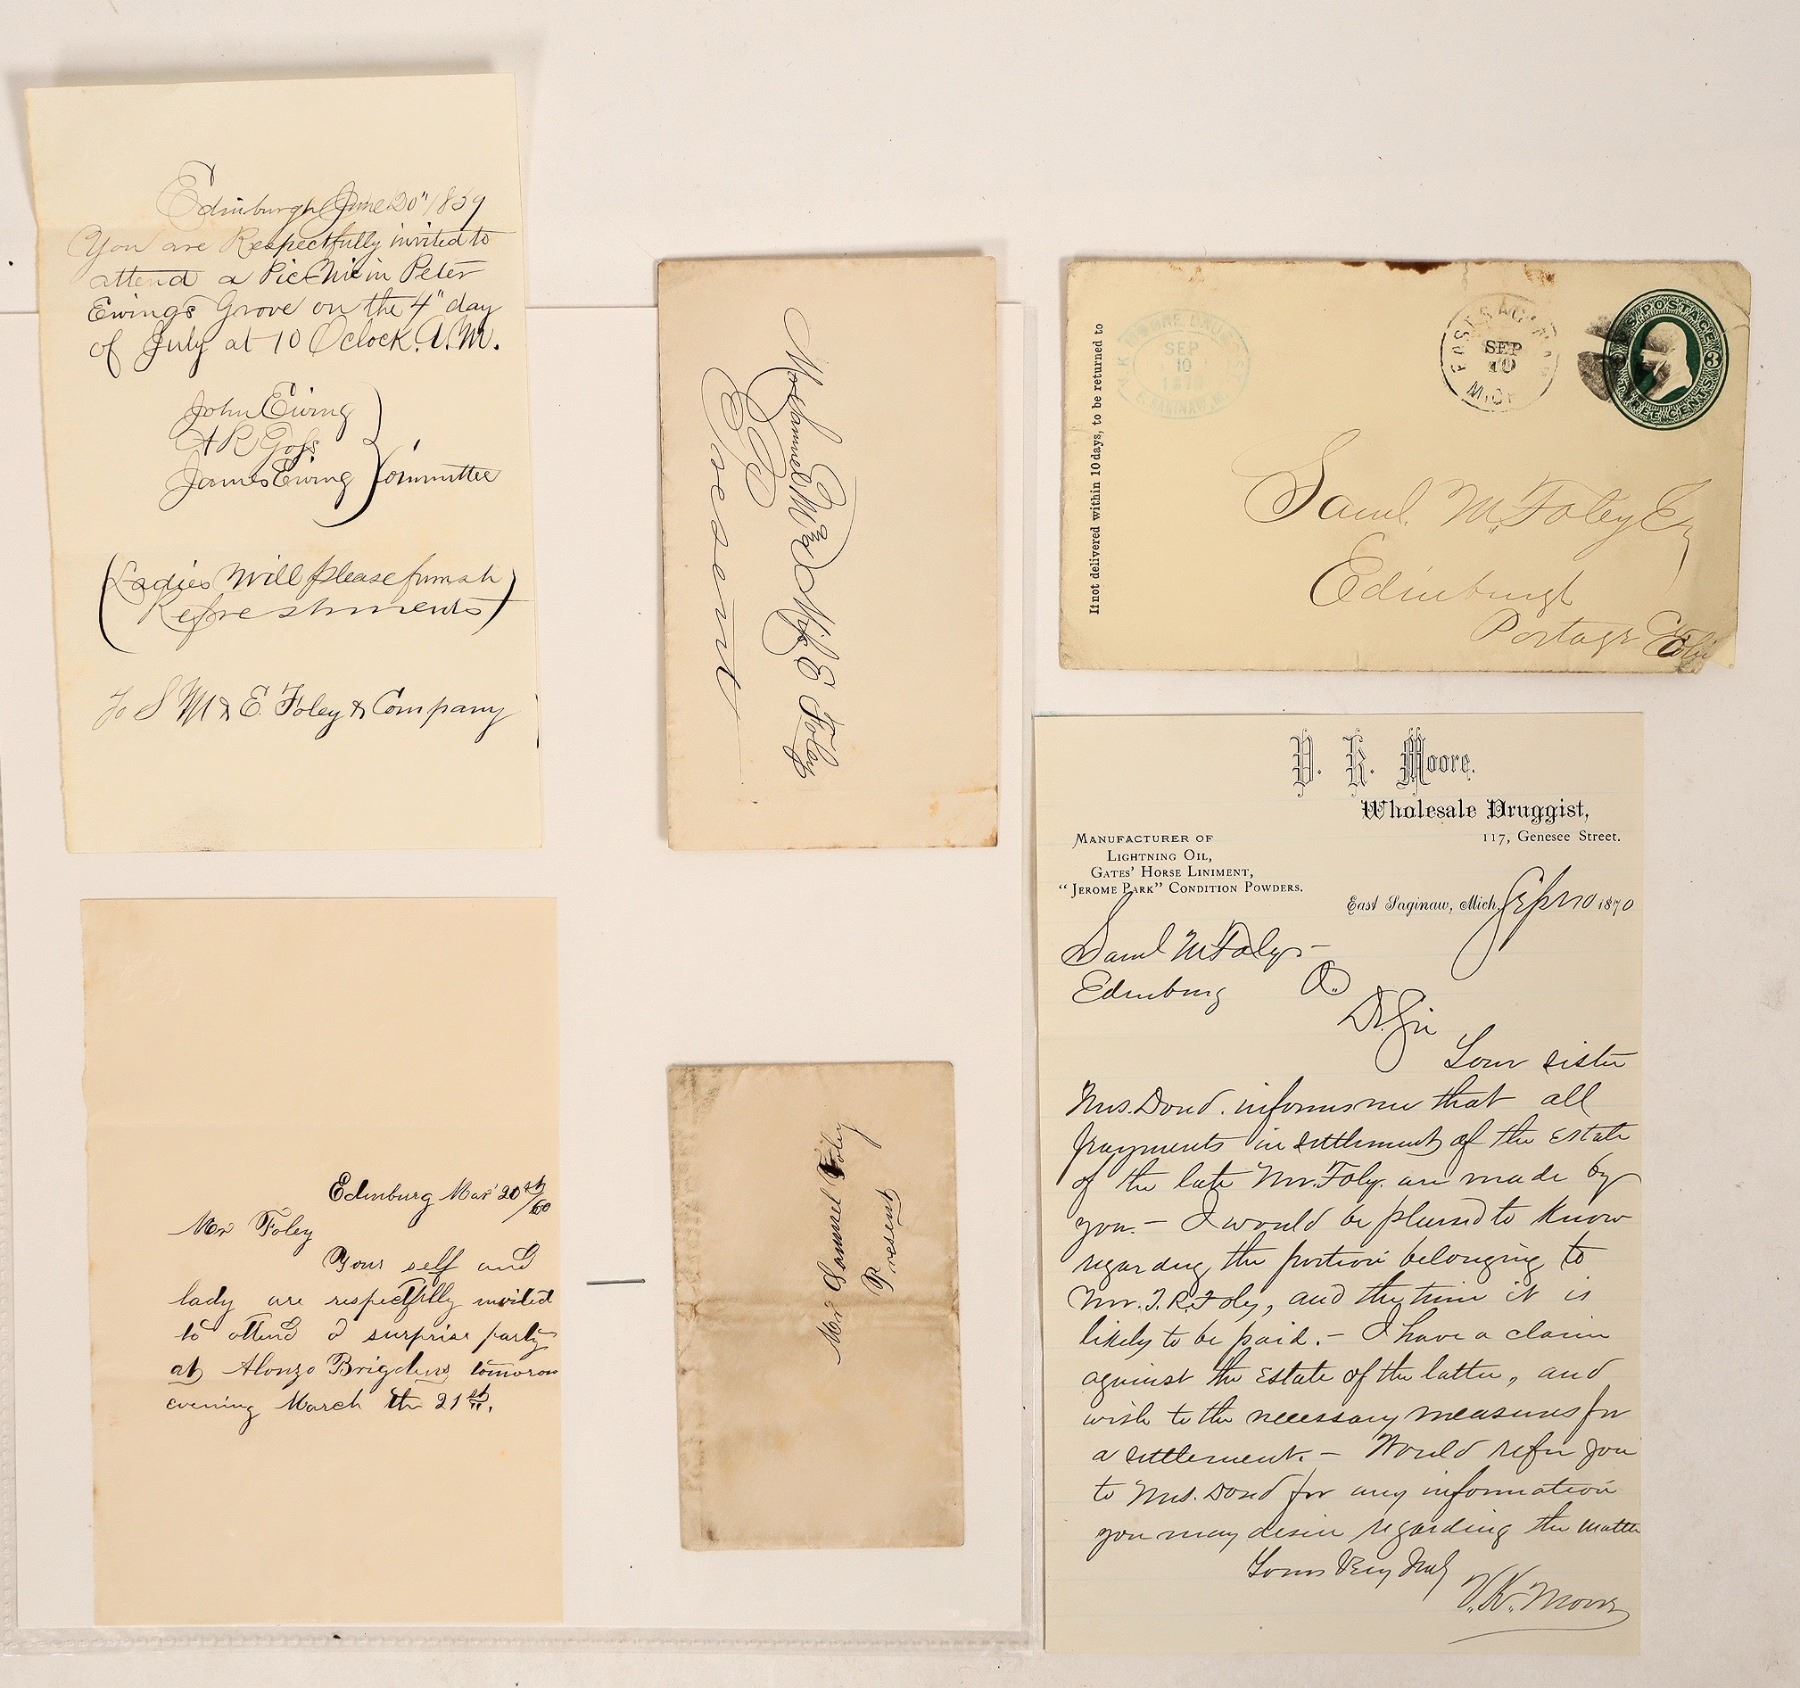 Edinburgh June 20" 1859
You are Respectfully invited to
attend a Pic Nic in Peter
Ewing's Grove on the 4" day
of July at 10 Oclock. A.M.
John Ewing
A R Goss
James Ewing
Committee
(Ladies Will please furnish
Refreshments)
To S M & E. Foley & Company
Foley
Present
If not delivered within 10 days, to be returned to
MOORE DRUGGIST
SEP
10
E. SAGINAW, M.
EAST SAGINAW
SEP
10
MICH
U.S. POSTAGE
3
THREE CENTS
Saml. M. Foley Esq
Edinburgh
Portage Co
Ohio
Edinburg Mar 20th/60
Mr Foley
Your self and
lady are respectfully invited
to attend a surprise party
at Alonzo Brigdens tomorow
evening March the 21st.
Mr Samuel Foley
Present
V. K. Moore.
Wholesale Druggist,
117, Genesee Street.
Manufacturer of
Lightning Oil,
Gates' Horse Liniment,
"Jerome Park" Condition Powders.
East Saginaw, Mich, Sept 10 1870
Saml M Foley -
Edinburg O.
Dr. Sir
Your sister
Mrs. Doud. informs me that all
payments in settlement of the estate
of the late Mr. Foly. are made by
you. - I would be pleased to know
regarding the portion belonging to
Mr. T. R. Foley, and the time it is
likely to be paid. - I have a claim
against the estate of the latter, and
wish to the necessary measures for
a settlement. - Would refer you
to Mrs. Doud for any information
you may desire regarding the matter
Yours Very Truly
V. K. Moore